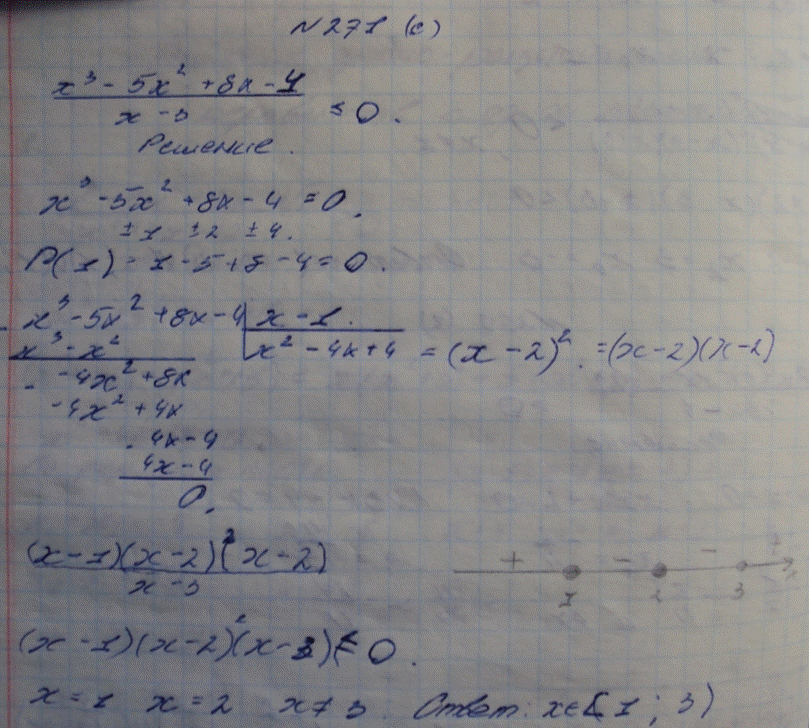 N 271 (с)
x³ - 5x² + 8x - 4
x - 3 ≤ 0.
Решение.
x³ - 5x² + 8x - 4 = 0.
±1 ±2 ±4.
P(1) = 1 - 5 + 8 - 4 = 0.
x³ - 5x² + 8x - 4 | x - 1.
x³ - x² | x² - 4x + 4 = (x - 2)². = (x - 2)(x - 2)
- -4x² + 8x
-4x² + 4x
- 4x - 4
4x - 4
0.
(x - 1)(x - 2)²(x - 2)
x - 3
+ - - +
1 2 3
(x - 1)(x - 2)²(x - 3) ≤ 0.
x = 1 x = 2 x ≠ 3 Ответ: x ∈ [1; 3)